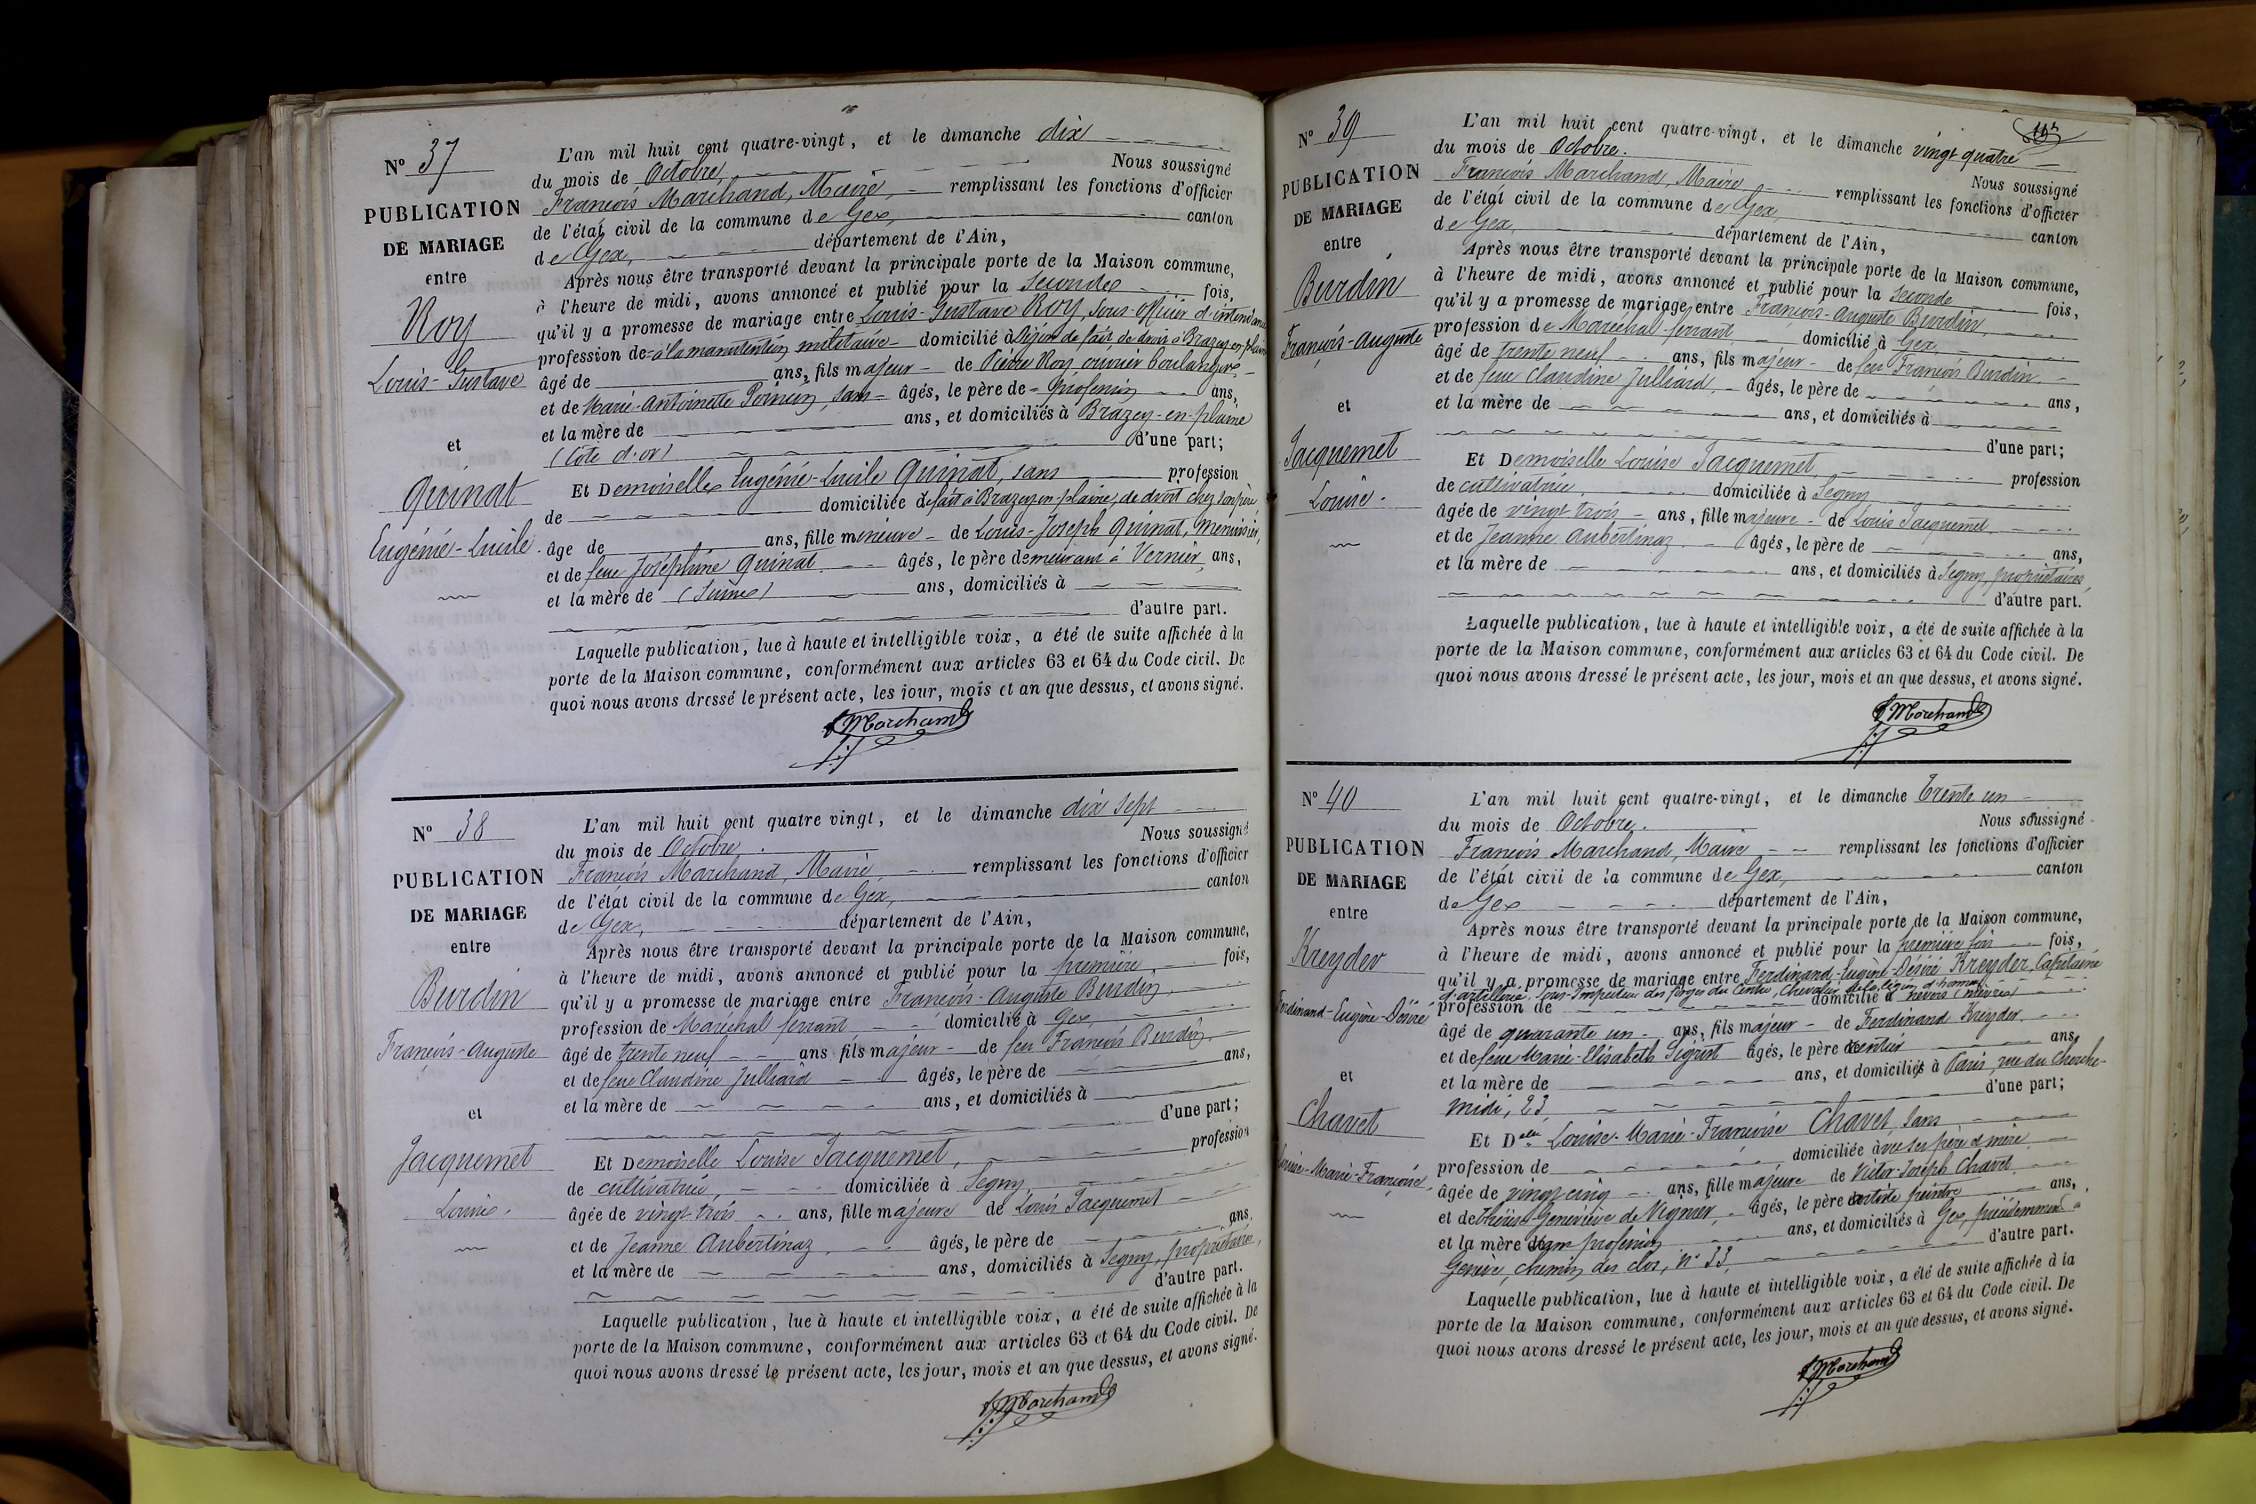 N° 37
PUBLICATION
DE MARIAGE
entre
Roy
Louis-Gustave
et
Quinat
Eugénie-Lucile.
L'an mil huit cent quatre-vingt, et le dimanche dix
du mois de Octobre, Nous soussigné
François Marchand, Maire, remplissant les fonctions d'officier
de l'état civil de la commune de Gex, canton
de Gex, département de l'Ain,
Après nous être transporté devant la principale porte de la Maison commune,
à l'heure de midi, avons annoncé et publié pour la seconde fois,
qu'il y a promesse de mariage entre Louis-Gustave Roy, sous-officier d'intendance
profession de à la manutention militaire domicilié à Dijon de fait, de droit à Brazey-en-plaine
âgé de ans, fils majeur de Pierre Roy, ouvrier boulanger,
et de Marie-Antoinette, sans âgés, le père de profession ans,
et la mère de ans, et domiciliés à Brazey-en-plaine
(Côte d'or) d'une part;
Et Demoiselle Eugénie-Lucile Quinat, sans profession
de domiciliée de fait à Brazey en plaine, de droit chez son père
âge de ans, fille mineure de Louis-Joseph Quinat, menuisier,
et de feue Joséphine Quinat âgés, le père demeurant à Vernier, ans,
et la mère de (Suisse) ans, domiciliés à
d'autre part.
Laquelle publication, lue à haute et intelligible voix, a été de suite affichée à la
porte de la Maison commune, conformément aux articles 63 et 64 du Code civil. De
quoi nous avons dressé le présent acte, les jour, mois et an que dessus, et avons signé.
F Marchand
N° 38
PUBLICATION
DE MARIAGE
entre
Burdin
François-Auguste
et
Jacquemet
Louise.
L'an mil huit cent quatre vingt, et le dimanche dix sept
du mois de Octobre. Nous soussigné
François Marchand, Maire, remplissant les fonctions d'officier
de l'état civil de la commune de Gex, canton
de Gex, département de l'Ain,
Après nous être transporté devant la principale porte de la Maison commune,
à l'heure de midi, avons annoncé et publié pour la première, fois,
qu'il y a promesse de mariage entre François-Auguste Burdin,
profession de Maréchal ferrant domicilié à Gex,
âgé de trente neuf ans fils majeur de feu François Burdin.
et de feue Claudine Julliard âgés, le père de ans,
et la mère de ans, et domiciliés à
d'une part;
Et Demoiselle Louise Jacquemet, profession
de cultivatrice, domiciliée à Segny
âgée de vingt-trois ans, fille majeure de Louis Jacquemet
et de Jeanne Aubertinaz, âgés, le père de ans
et la mère de ans, domiciliés à Segny, propriétaires,
d'autre part.
Laquelle publication, lue à haute et intelligible voix, a été de suite affichée à la
porte de la Maison commune, conformément aux articles 63 et 64 du Code civil. De
quoi nous avons dressé le présent acte, les jour, mois et an que dessus, et avons signé.
F Marchand
N° 39
PUBLICATION
DE MARIAGE
entre
Burdin
François-Auguste
et
Jacquemet
Louise.
L'an mil huit cent quatre-vingt, et le dimanche vingt quatre
du mois de Octobre. Nous soussigné
François Marchand, Maire remplissant les fonctions d'officier
de l'état civil de la commune de Gex, canton
de Gex, département de l'Ain,
Après nous être transporté devant la principale porte de la Maison commune,
à l'heure de midi, avons annoncé et publié pour la seconde fois,
qu'il y a promesse de mariage entre François-Auguste Burdin,
profession de Maréchal-ferrant, domicilié à Gex,
âgé de trente neuf ans, fils majeur de feu François Burdin.
et de feue Claudine Julliard, âgés, le père de ans,
et la mère de ans, et domiciliés à
d'une part;
Et Demoiselle Louise Jacquemet, profession
de cultivatrice, domiciliée à Segny
âgée de vingt trois ans, fille majeure de Louis Jacquemet,
et de Jeanne Aubertinaz âgés, le père de ans,
et la mère de ans, et domiciliés à Segny, propriétaires,
d'autre part.
Laquelle publication, lue à haute et intelligible voix, a été de suite affichée à la
porte de la Maison commune, conformément aux articles 63 et 64 du Code civil. De
quoi nous avons dressé le présent acte, les jour, mois et an que dessus, et avons signé.
F Marchand
N° 40
PUBLICATION
DE MARIAGE
entre
Kreyder
Ferdinand-Eugène-Désiré
et
Chavet
Louise-Marie-Françoise.
L'an mil huit cent quatre-vingt, et le dimanche trente un
du mois de Octobre. Nous soussigné
François Marchand, Maire remplissant les fonctions d'officier
de l'état civil de la commune de Gex, canton
de Gex département de l'Ain,
Après nous être transporté devant la principale porte de la Maison commune,
à l'heure de midi, avons annoncé et publié pour la première fois fois,
qu'il y a promesse de mariage entre Ferdinand-Eugène-Désiré Kreyder, Capitaine
d'artillerie, sous-Inspecteur des forges du Centre, Chevalier de la légion d'honneur
profession de domicilié à Nevers (nièvre)
âgé de quarante un ans, fils majeur de Ferdinand Kreyder
et de feue Marie-Elisabeth Sigrist âgés, le père rentier ans,
et la mère de ans, et domiciliés à Paris, rue du Cherche-
midi, 23, d'une part;
Et Delle Louise-Marie-Françoise Chavet, sans
profession de domiciliée avec ses père & mère
âgée de vingt cinq ans, fille majeure de Victor-Joseph Chavet
et de Geneviève de Vignier, âgés, le père artiste peintre ans,
et la mère sans profession ans, et domiciliés à Gex, précédemment à
Genève, chemin des clos, n° 33, d'autre part.
Laquelle publication, lue à haute et intelligible voix, a été de suite affichée à la
porte de la Maison commune, conformément aux articles 63 et 64 du Code civil. De
quoi nous avons dressé le présent acte, les jour, mois et an que dessus, et avons signé.
F Marchand